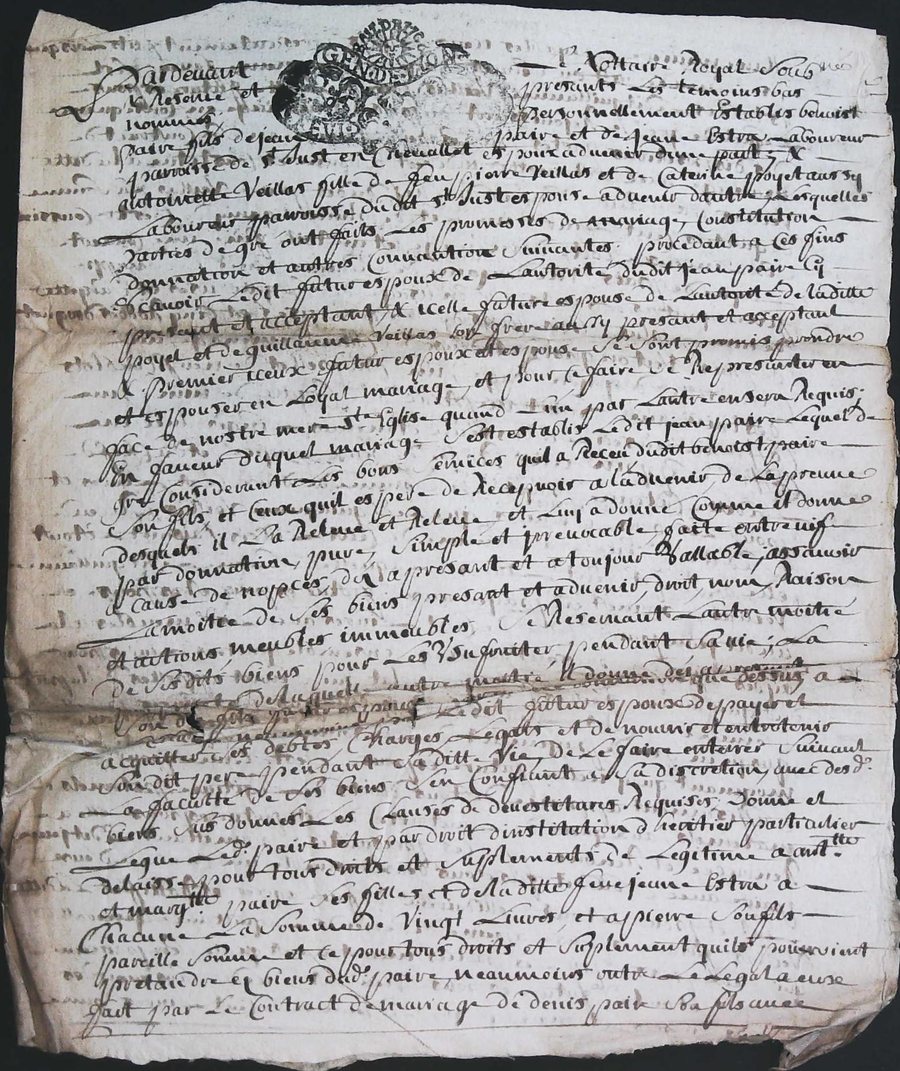 GEN. DE LYON
Pardevant Nottaire Royal Soub.né
Reservé et presants Les temoins bas
nommés personnellement Establis benoist
paire fils de Jean paire et de Jeane Estra Laboureur
parroisse de St Just en Chevallet espoux advenir dune part, &
antoinette Veillas fille de feu pierre Veillas et de Caterine poyet aussy
Laboureur parroisse dudit St Just espouse advenir dautre, Lesquelles
parties de gre ont faits Les promesses de mariage, Constitution
donnation et autres Convantions Suivantes, procedant a Ces fins
Scavoir Ledit futur espoux de Lautorité dudit Jean paire Cy
present et acceptant, & icelle future espouse de Lautorité de ladite
poyet et de guillaume Veillas son frere aussy presant et acceptant
& premier iceux futur espoux et espouse Se Sont promis prandre
et espouser en Loyal mariage, et pour ce faire Se Represanter en
face de nostre mere Ste Eglise quand L'un par Lautre en sera Requis
En faveur duquel mariage Sest establis Ledit Jean paire Lequel de
gre Considerant Les bons Services quil a Receu dudit benoist paire
Son fils, et Ceux quil espere de Recepvoir a Ladvenir de La preuve
desquels il La Releve et Releve, et Luy a donné Comme il donne
par donnation pure, Simple et irevocable faitte entre vif
a Cause de nopces, des a presant et a toujour Vallable, assavoir
La moitié de Ses biens presant et advenir, droit nom, Raison
et actions, meubles immeubles, Se Reservant Lautre moitié
de Sesdits biens pour Les Usufruiter pendant Sa vie, La
de laquelle autre moitié il donne que dessus a
Son dit fils Ledit futur espoux de payer et
acquitter Ses debtes, Charges, Legats et de nourir et entretenir
Sondit pere pendant Sa ditte Vie, De Le faire enterrer Suivant
La faculté de Ses biens Sen Confiant a Sa discretion, avec desd.
biens Sus donnés Les Clauses de devestitures Requises, Donne et
Legue Led. paire et par droit dinstitution d'heritier particulier
delaisse pour tous droits et Supplements de Legitime a ant.tte
et marg.tte paire Ses filles et de laditte feue Jeane Estra a
Chacune La Somme de Vingt Livres, et a pierre Son fils
pareille Somme et Ce pour tous droits et Suplement quils pourroient
pretandre Es biens dud. paire, neaumoins outre Le Legat a Luy
fait par Le Contract de mariage de denis paire Son fils avec